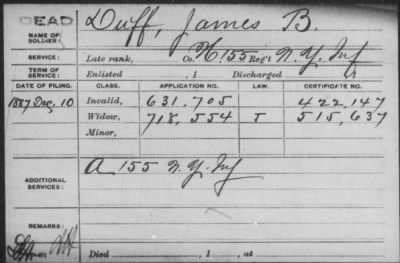 DEAD
NAME OF SOLDIER: Duff, James B.
SERVICE: Late rank, Co. H, 155 Reg't N.Y. Inf
TERM OF SERVICE: Enlisted , 1 Discharged
DATE OF FILING. CLASS. APPLICATION NO. LAW. CERTIFICATE NO.
1887 Dec, 10 Invalid, 631,705 422,147
Widow, 718,554 T 515,637
Minor,
ADDITIONAL SERVICES: A 155 N.Y. Inf
REMARKS:
Died , 1 , at